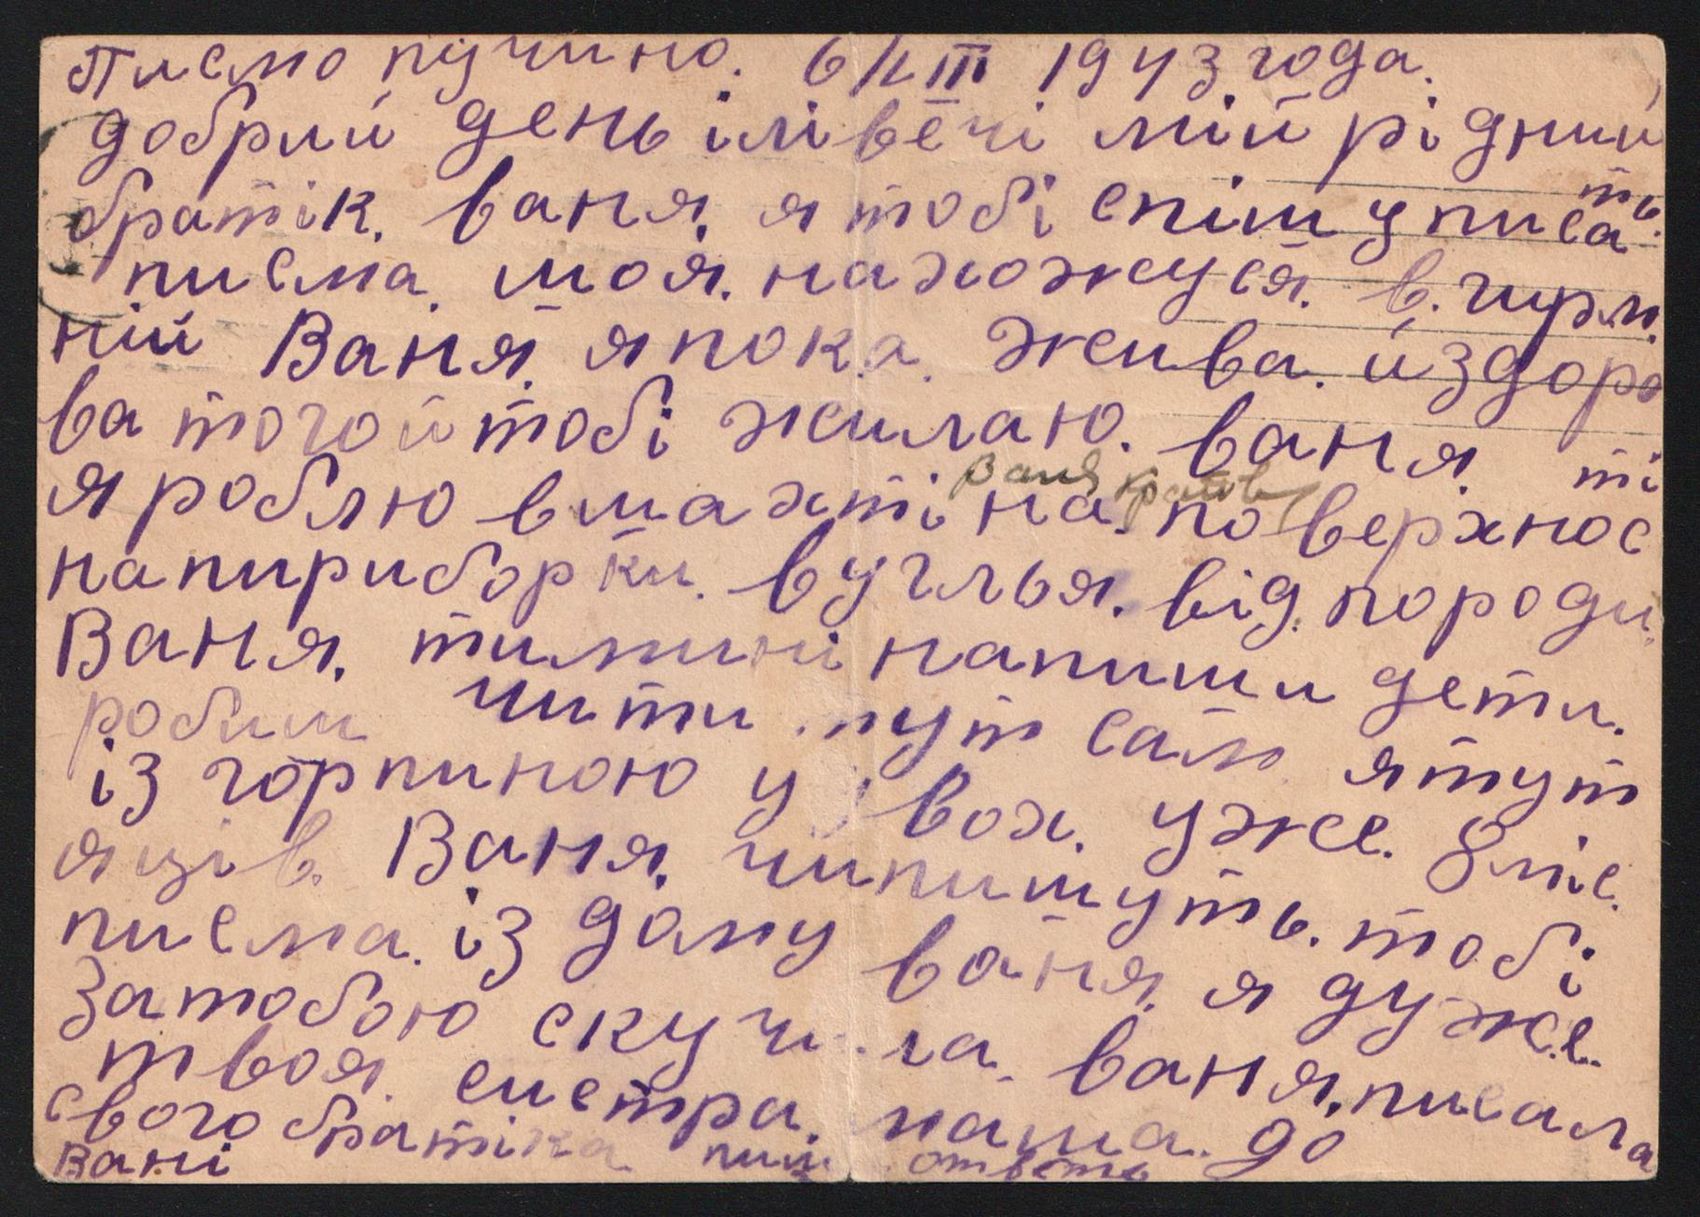 Писмо пущино. 6/IIII 1943 года.
добрий день ілі вечі мій рідний
братік. ваня, я тобі спішу писать
писма. моя. нахожуся. в. гирм.
ній Ваня, я пока. жива. й здоро
ва того й тобі жилаю. ваня, ті
Ваня
я роблю в шахті на. поверхнос
на пириборки. вугілья. від. породи.
Ваня. ти мині напиши дети.
робиш чи ти тут сам. я тут
із горпиною у двох. уже. 8 міс.
яців. Ваня, чи пишуть. тобі
писма. із дому ваня, я дуже.
за тобою скучила. ваня, писала
твоя. систра. маша. до
свого братіка
Вані пиши ответь